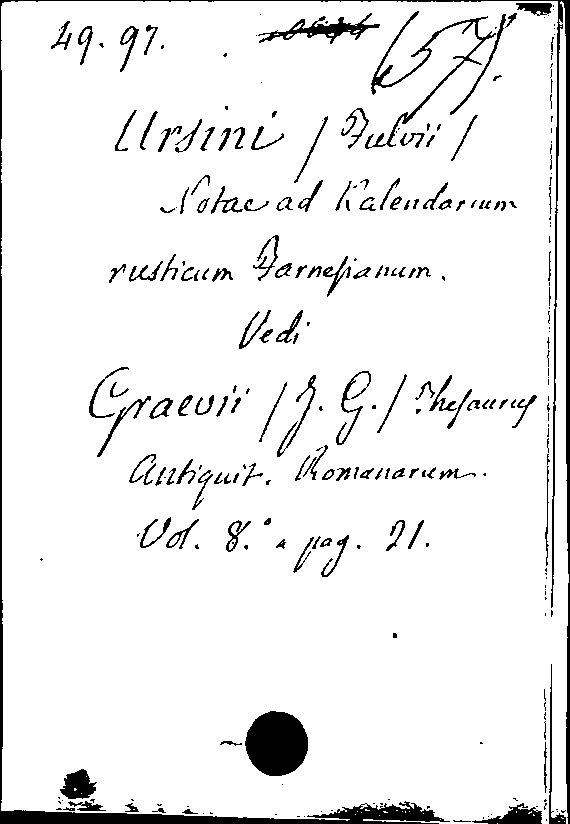 49.97. (57).
Ursini / Fulvii /
Notae ad Kalendarium
rusticum Farnesianum.
Vedi
Graevii / J. G. / Thesaurus
Antiquit. Romanarum.
Vol. 8.° a pag. 21.